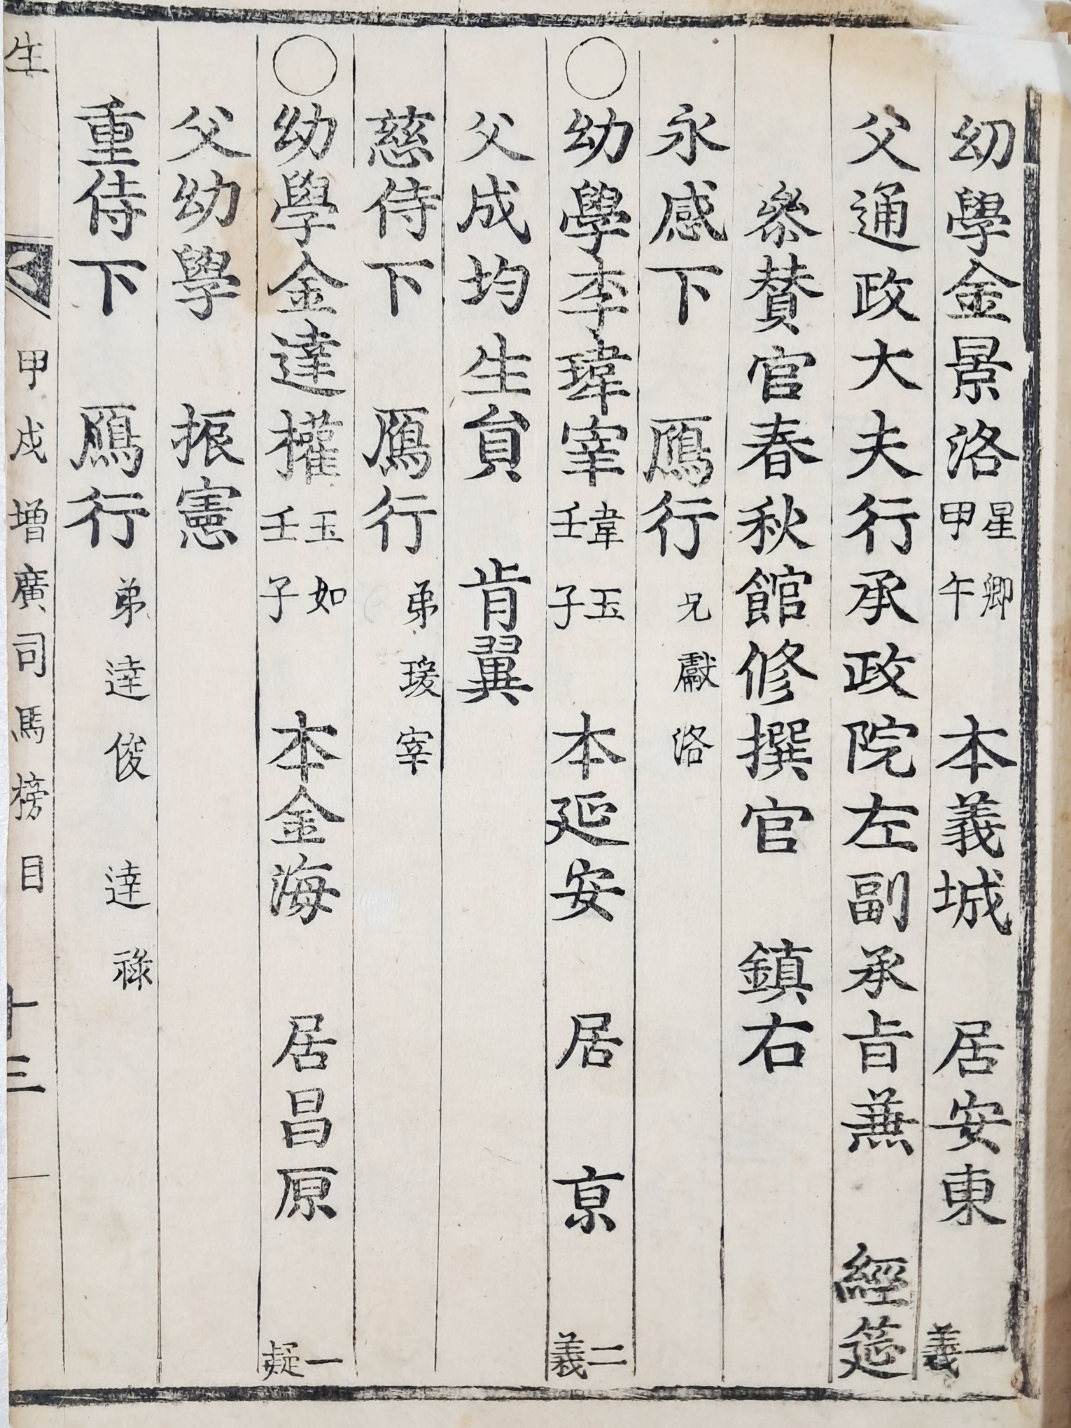 幼學金景洛 星卿 甲午 本義城 居安東 一義
父通政大夫行承政院左副承旨兼 經筵
叅賛官春秋館修撰官 鎮右
永感下 鴈行 兄獻洛
〇幼學李瑋宰 韋玉 壬子 本延安 居 京 二義
父成均生員 肯翼
慈侍下 鴈行 弟瑗宰
〇幼學金達權 玉如 壬子 本金海 居昌原 一疑
父幼學 振憲
重侍下 鴈行 弟達俊 達祿
生 甲戌增廣司馬榜目 十三